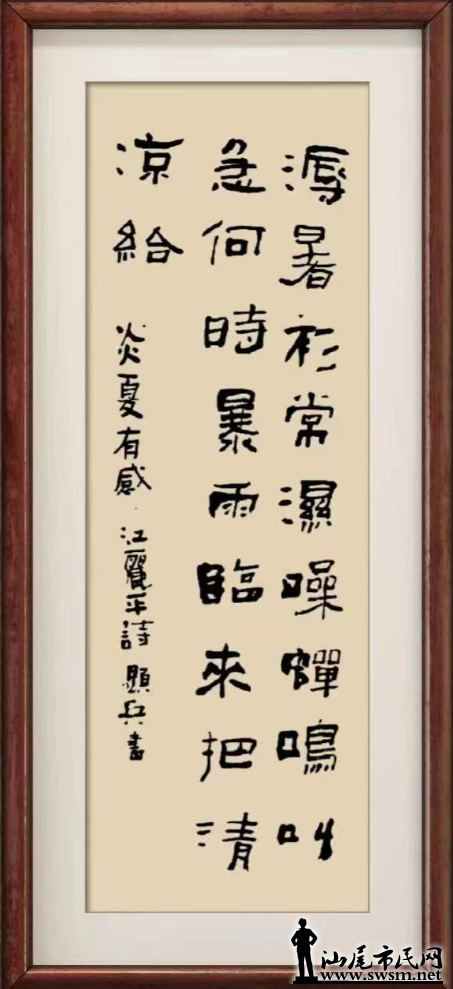 溽暑衫常濕噪蟬鳴叫
急何時暴雨臨來把清
涼給
炎夏有感 江麗平詩 顯兵書
汕尾市民网
www.swsm.net